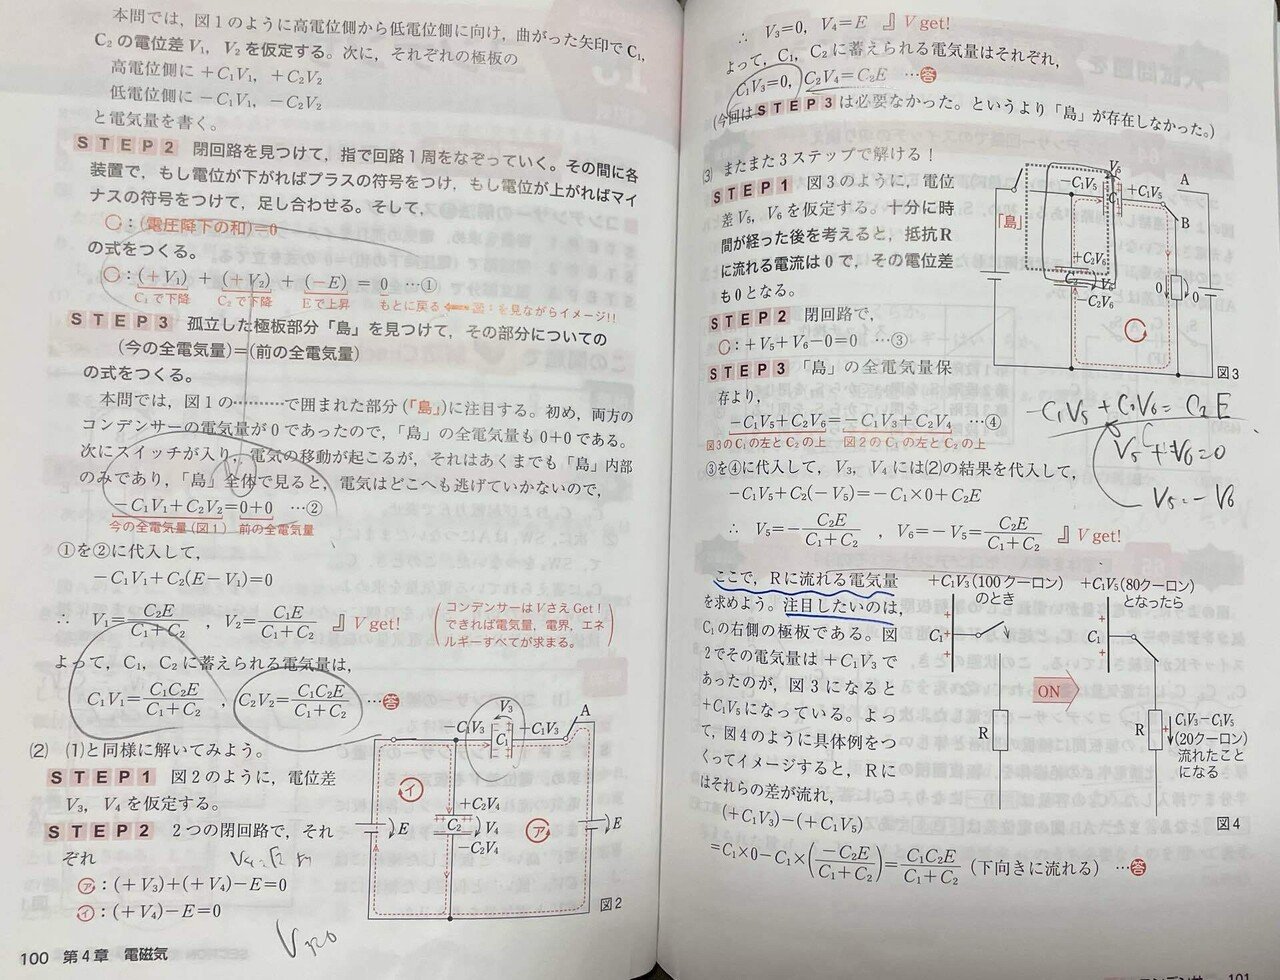 本問では，図１のように高電位側から低電位側に向け，曲がった矢印でC₁,
C₂の電位差V₁，V₂を仮定する。次に，それぞれの極板の
高電位側に ＋C₁V₁，＋C₂V₂
低電位側に －C₁V₁，－C₂V₂
と電気量を書く。
STEP2 閉回路を見つけて，指で回路１周をなぞっていく。その間に各
装置で，もし電位が下がればプラスの符号をつけ，もし電位が上がればマイ
ナスの符号をつけて，足し合わせる。そして，
○：(電圧降下の和)＝0
の式をつくる。
○：(＋V₁) ＋ (＋V₂) ＋ (－E) ＝ 0 …①
C₁で下降 C₂で下降 Eで上昇 もとに戻る
を見ながらイメージ!!
STEP3 孤立した極板部分「島」を見つけて，その部分についての
(今の全電気量)＝(前の全電気量)
の式をつくる。
本問では，図１の………で囲まれた部分(「島」)に注目する。初め，両方の
コンデンサーの電気量が0であったので，「島」の全電気量も0＋0である。
次にスイッチが入り，電気の移動が起こるが，それはあくまでも「島」内部
のみであり，「島」全体で見ると，電気はどこへも逃げていかないので，
－C₁V₁＋C₂V₂＝0＋0 …②
今の全電気量(図１) 前の全電気量
①を②に代入して，
－C₁V₁＋C₂(E－V₁)＝0
∴ V₁＝C₂E/(C₁＋C₂)，V₂＝C₁E/(C₁＋C₂) 』V get!
(コンデンサーはVさえGet！
できれば電気量，電界，エネ
ルギーすべてが求まる。)
よって，C₁，C₂に蓄えられる電気量は，
C₁V₁＝C₁C₂E/(C₁＋C₂)，C₂V₂＝C₁C₂E/(C₁＋C₂) …答
(2) (1)と同様に解いてみよう。
STEP1 図２のように，電位差
V₃，V₄を仮定する。
STEP2 ２つの閉回路で，それ
ぞれ
㋐：(＋V₃)＋(＋V₄)－E＝0
㋑：(＋V₄)－E＝0
V₃
＋C₁V₃ C₁ －C₁V₃ A
㋑
＋C₂V₄
E C₂ V₄ ㋐ E
－C₂V₄
図２
100 第４章 電磁気
∴ V₃＝0，V₄＝E 』V get!
よって，C₁，C₂に蓄えられる電気量はそれぞれ，
C₁V₃＝0，C₂V₄＝C₂E …答
(今回はSTEP3は必要なかった。というより「島」が存在しなかった。)
(3) またまた３ステップで解ける！
STEP1 図３のように，電位
差V₅，V₆を仮定する。十分に時
間が経った後を考えると，抵抗R
に流れる電流は0で，その電位差
も0となる。
STEP2 閉回路で，
○：＋V₅＋V₆－0＝0 …③
STEP3 「島」の全電気量保
存より，
－C₁V₅＋C₂V₆＝－C₁V₃＋C₂V₄ …④
図３のC₁の左とC₂の上 図２のC₁の左とC₂の上
③を④に代入して，V₃，V₄には(2)の結果を代入して，
－C₁V₅＋C₂(－V₅)＝－C₁×0＋C₂E
∴ V₅＝－C₂E/(C₁＋C₂)，V₆＝－V₅＝C₂E/(C₁＋C₂) 』V get!
V₅
－C₁V₅ C₁ ＋C₁V₅ A
B
「島」
＋C₂V₆
C₂ V₆
－C₂V₆
0 0
図３
V₅＝－V₆
ここで，Rに流れる電気量
を求めよう。注目したいのは，
C₁の右側の極板である。図
２でその電気量は＋C₁V₃で
あったのが，図３になると
＋C₁V₅になっている。よっ
て，図４のように具体例をつ
くってイメージすると，Rに
はそれらの差が流れ，
(＋C₁V₃)－(＋C₁V₅)
＝C₁×0－C₁×(－C₂E/(C₁＋C₂))＝C₁C₂E/(C₁＋C₂) (下向きに流れる) …答
＋C₁V₃(100クーロン)
のとき
C₁
R
ON
＋C₁V₅(80クーロン)
となったら
C₁
R
C₁V₃－C₁V₅
(20クーロン)
流れたこと
になる
図４
101